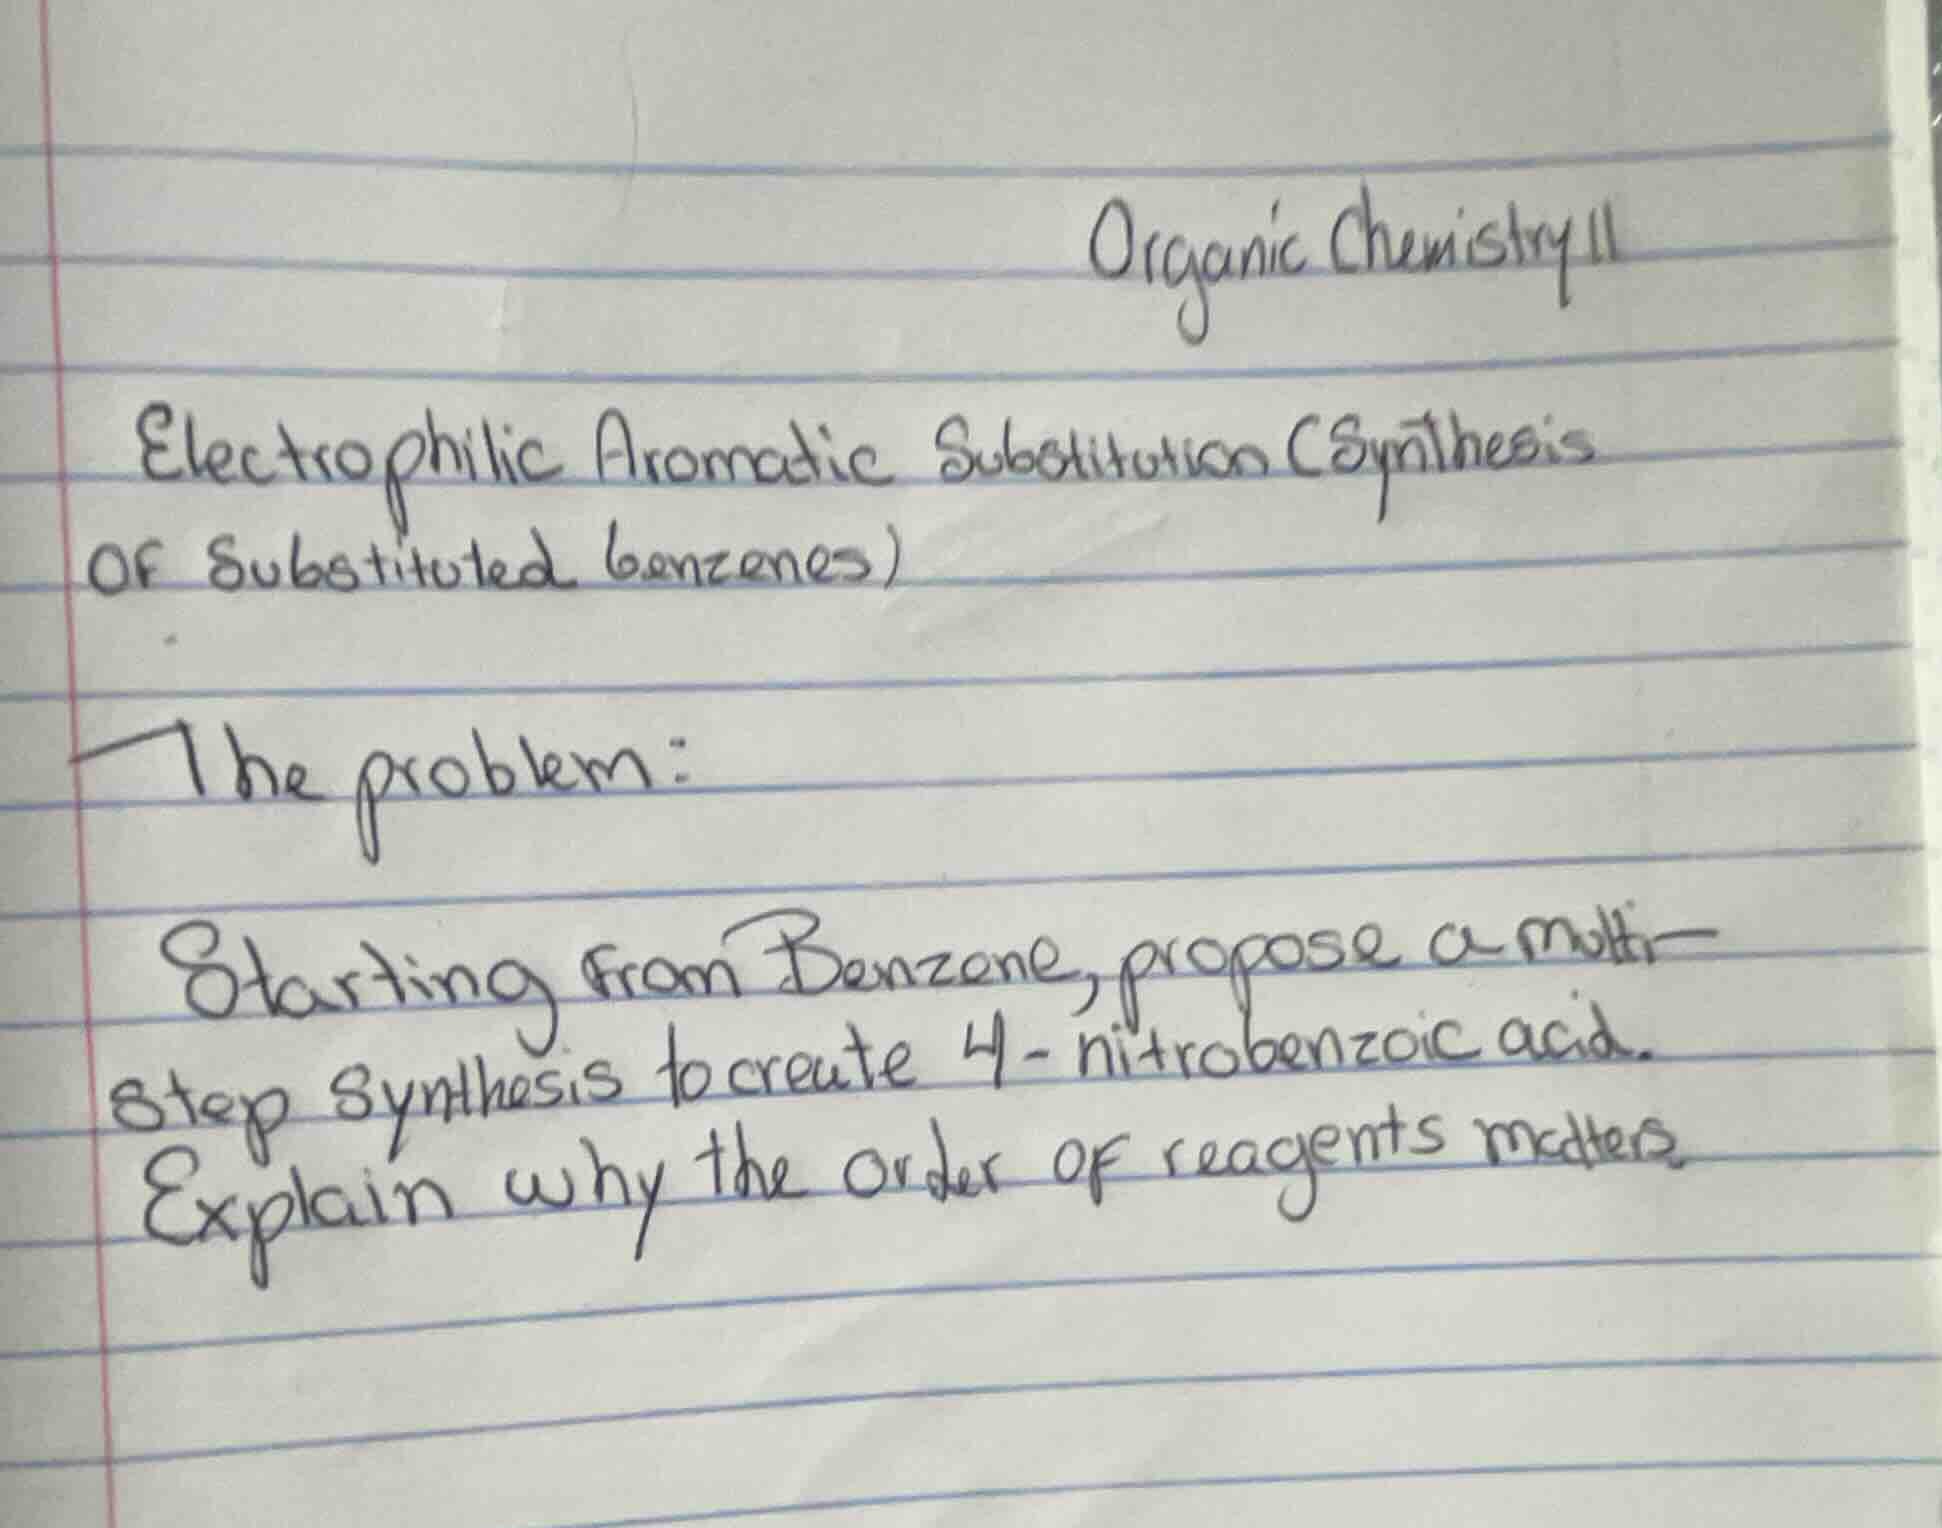 Organic Chemistry II
Electrophilic Aromatic Substitution (Synthesis
of Substituted benzenes)
The problem:
Starting from Benzene, propose a multi-
step synthesis to create 4-nitrobenzoic acid.
Explain why the order of reagents matters.